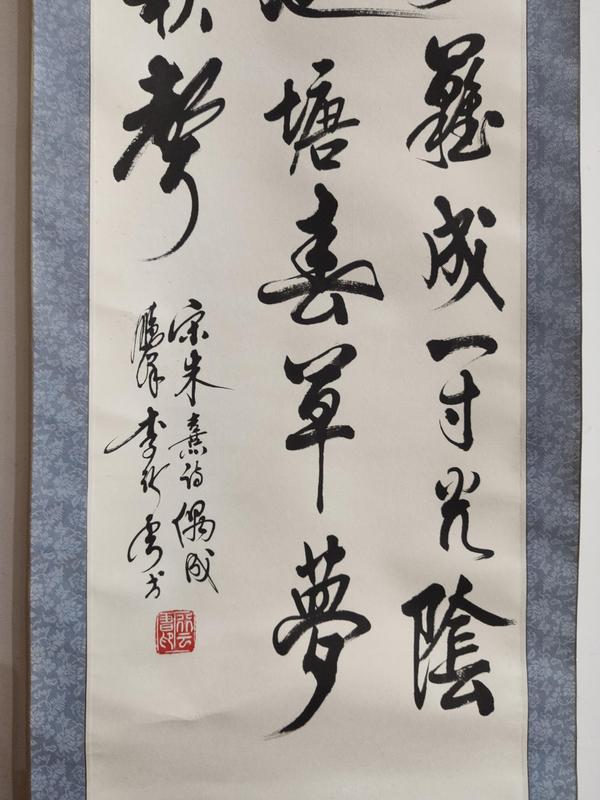 難成一寸光陰
池塘春草夢
秋聲
宋朱熹詩偶成
李行雲书
行云書印